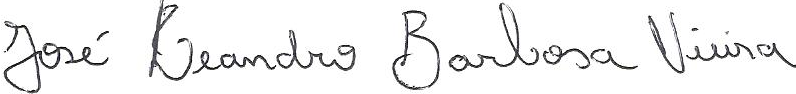 José Leandro Barbosa Vieira